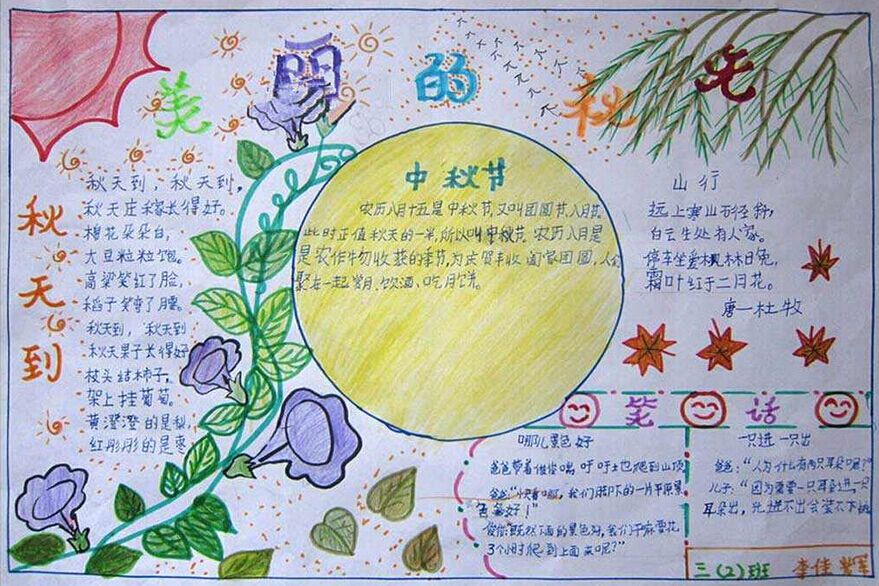 美丽的秋光
秋天到
秋天到，秋天到，
秋天庄稼长得好。
棉花朵朵白，
大豆粒粒饱。
高粱笑红了脸，
稻子笑弯了腰。
秋天到，秋天到
秋天果子长得好
枝头结柿子，
架上挂葡萄。
黄澄澄的是梨，
红彤彤的是枣
中秋节
农历八月十五是中秋节,又叫团圆节,八月节
此时正值秋天的一半,所以叫中秋节.农历八月是
是农作物收获的季节,为庆贺丰收,阖家团圆,人们
聚在一起赏月、饮酒、吃月饼。
山行
远上寒山石径斜，
白云生处有人家。
停车坐爱枫林晚，
霜叶红于二月花。
唐一杜牧
笑话
哪儿景色好
爸爸带着俊俊喘吁吁土也爬到山顶
爸爸：“快看哪，我们脚下的一片平原景
色多好！”
俊俊：“既然下面的景色好，我们干嘛要花
3个小时爬到上面来呢？”
一只进一只出
爸爸：“人为什么有两只耳朵呢？”
儿子：“因为需要一只耳朵进，一只
耳朵出，光进不出会装不下
三(2)班 李佳辉